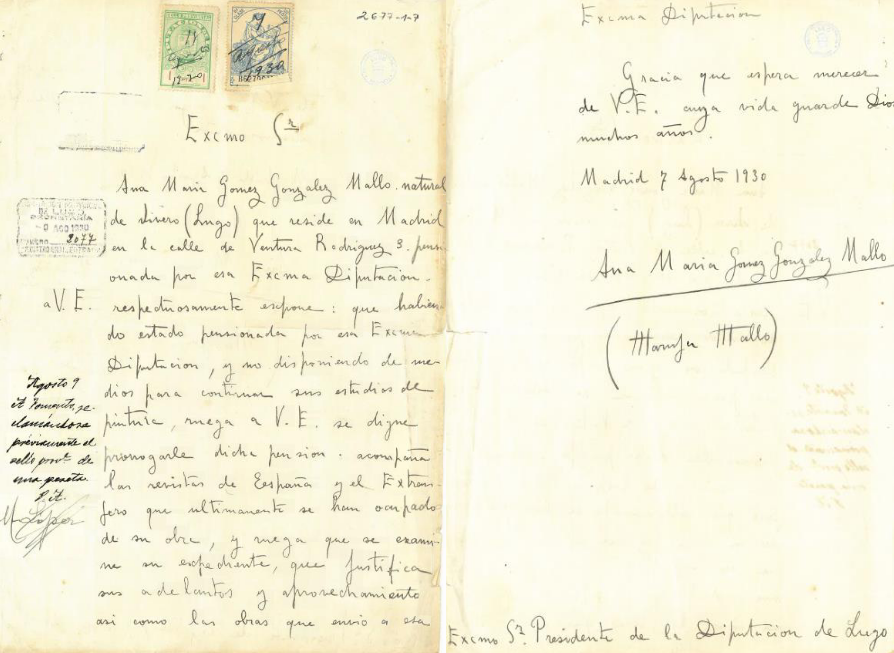 2677-1-7
11
1930
7
agosto
1930
Excmo Sr
Ana Maria Gomez Gonzalez Mallo. natural
de Vivero (Lugo) que reside en Madrid
en la calle de Ventura Rodriguez 3. pensi-
onada por esa Excma Diputacion.
a V.E. respectuosamente expone: que habien-
do estado pensionada por esa Excma
Diputacion, y no disponiendo de me-
dios para continuar sus estudios de
pintura, ruega a V.E. se digne
prorrogarle dicha pension. acompaña
las revistas de Eespaña y el Extran-
jero que ultimamente se han ocupado
de su obra, y ruega que se exami-
ne su expediente, que justifica
sus adelantos y aprovechamiento
asi como las obras que envio a esa
DE LUGO
9 AGO 1930
2077
Agosto 9
A Fomento, re-
clamándose
préviamente el
sello provl. de
una peseta.
P.A.
Excma Diputacion
Gracia que espera merecer
de V.E. cuya vida guarde Dios
muchos años.
Madrid 7 Agosto 1930
Ana Maria Gomez Gonzalez Mallo
(Maruja Mallo)
Excmo Sr. Presidente de la Diputacion de Lugo